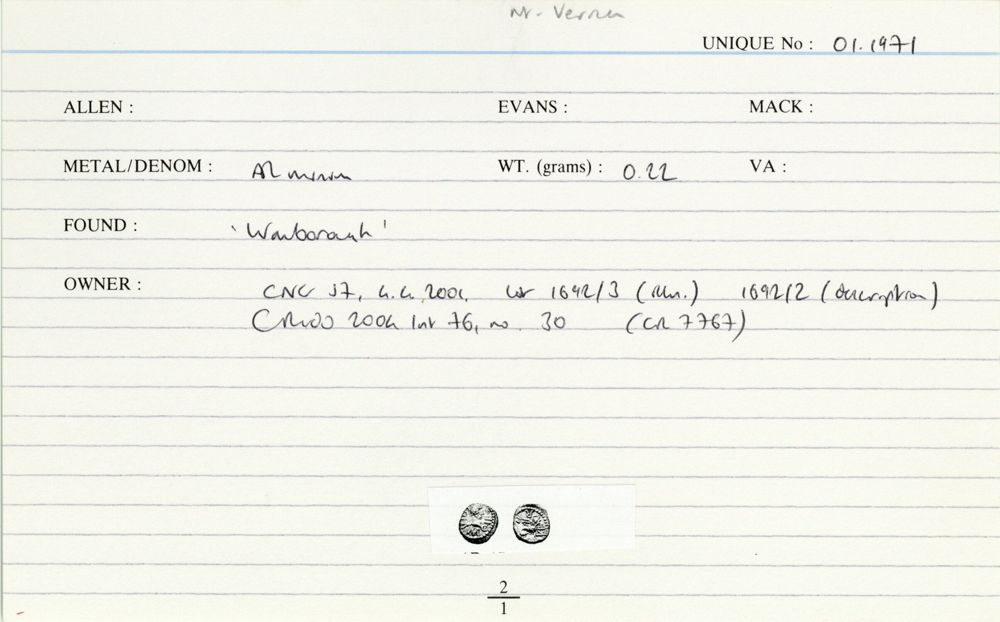 Mr. Verner
UNIQUE No : 01.1971
ALLEN : EVANS : MACK :
METAL/DENOM : AR minim WT. (grams) : 0.22 VA :
FOUND : 'Wanborough'
OWNER : CNG 57, 4.4.2001, lot 1692/3 (illus.) 1692/2 (description)
2004 list 76, no. 30 (CR 7767)
2
1